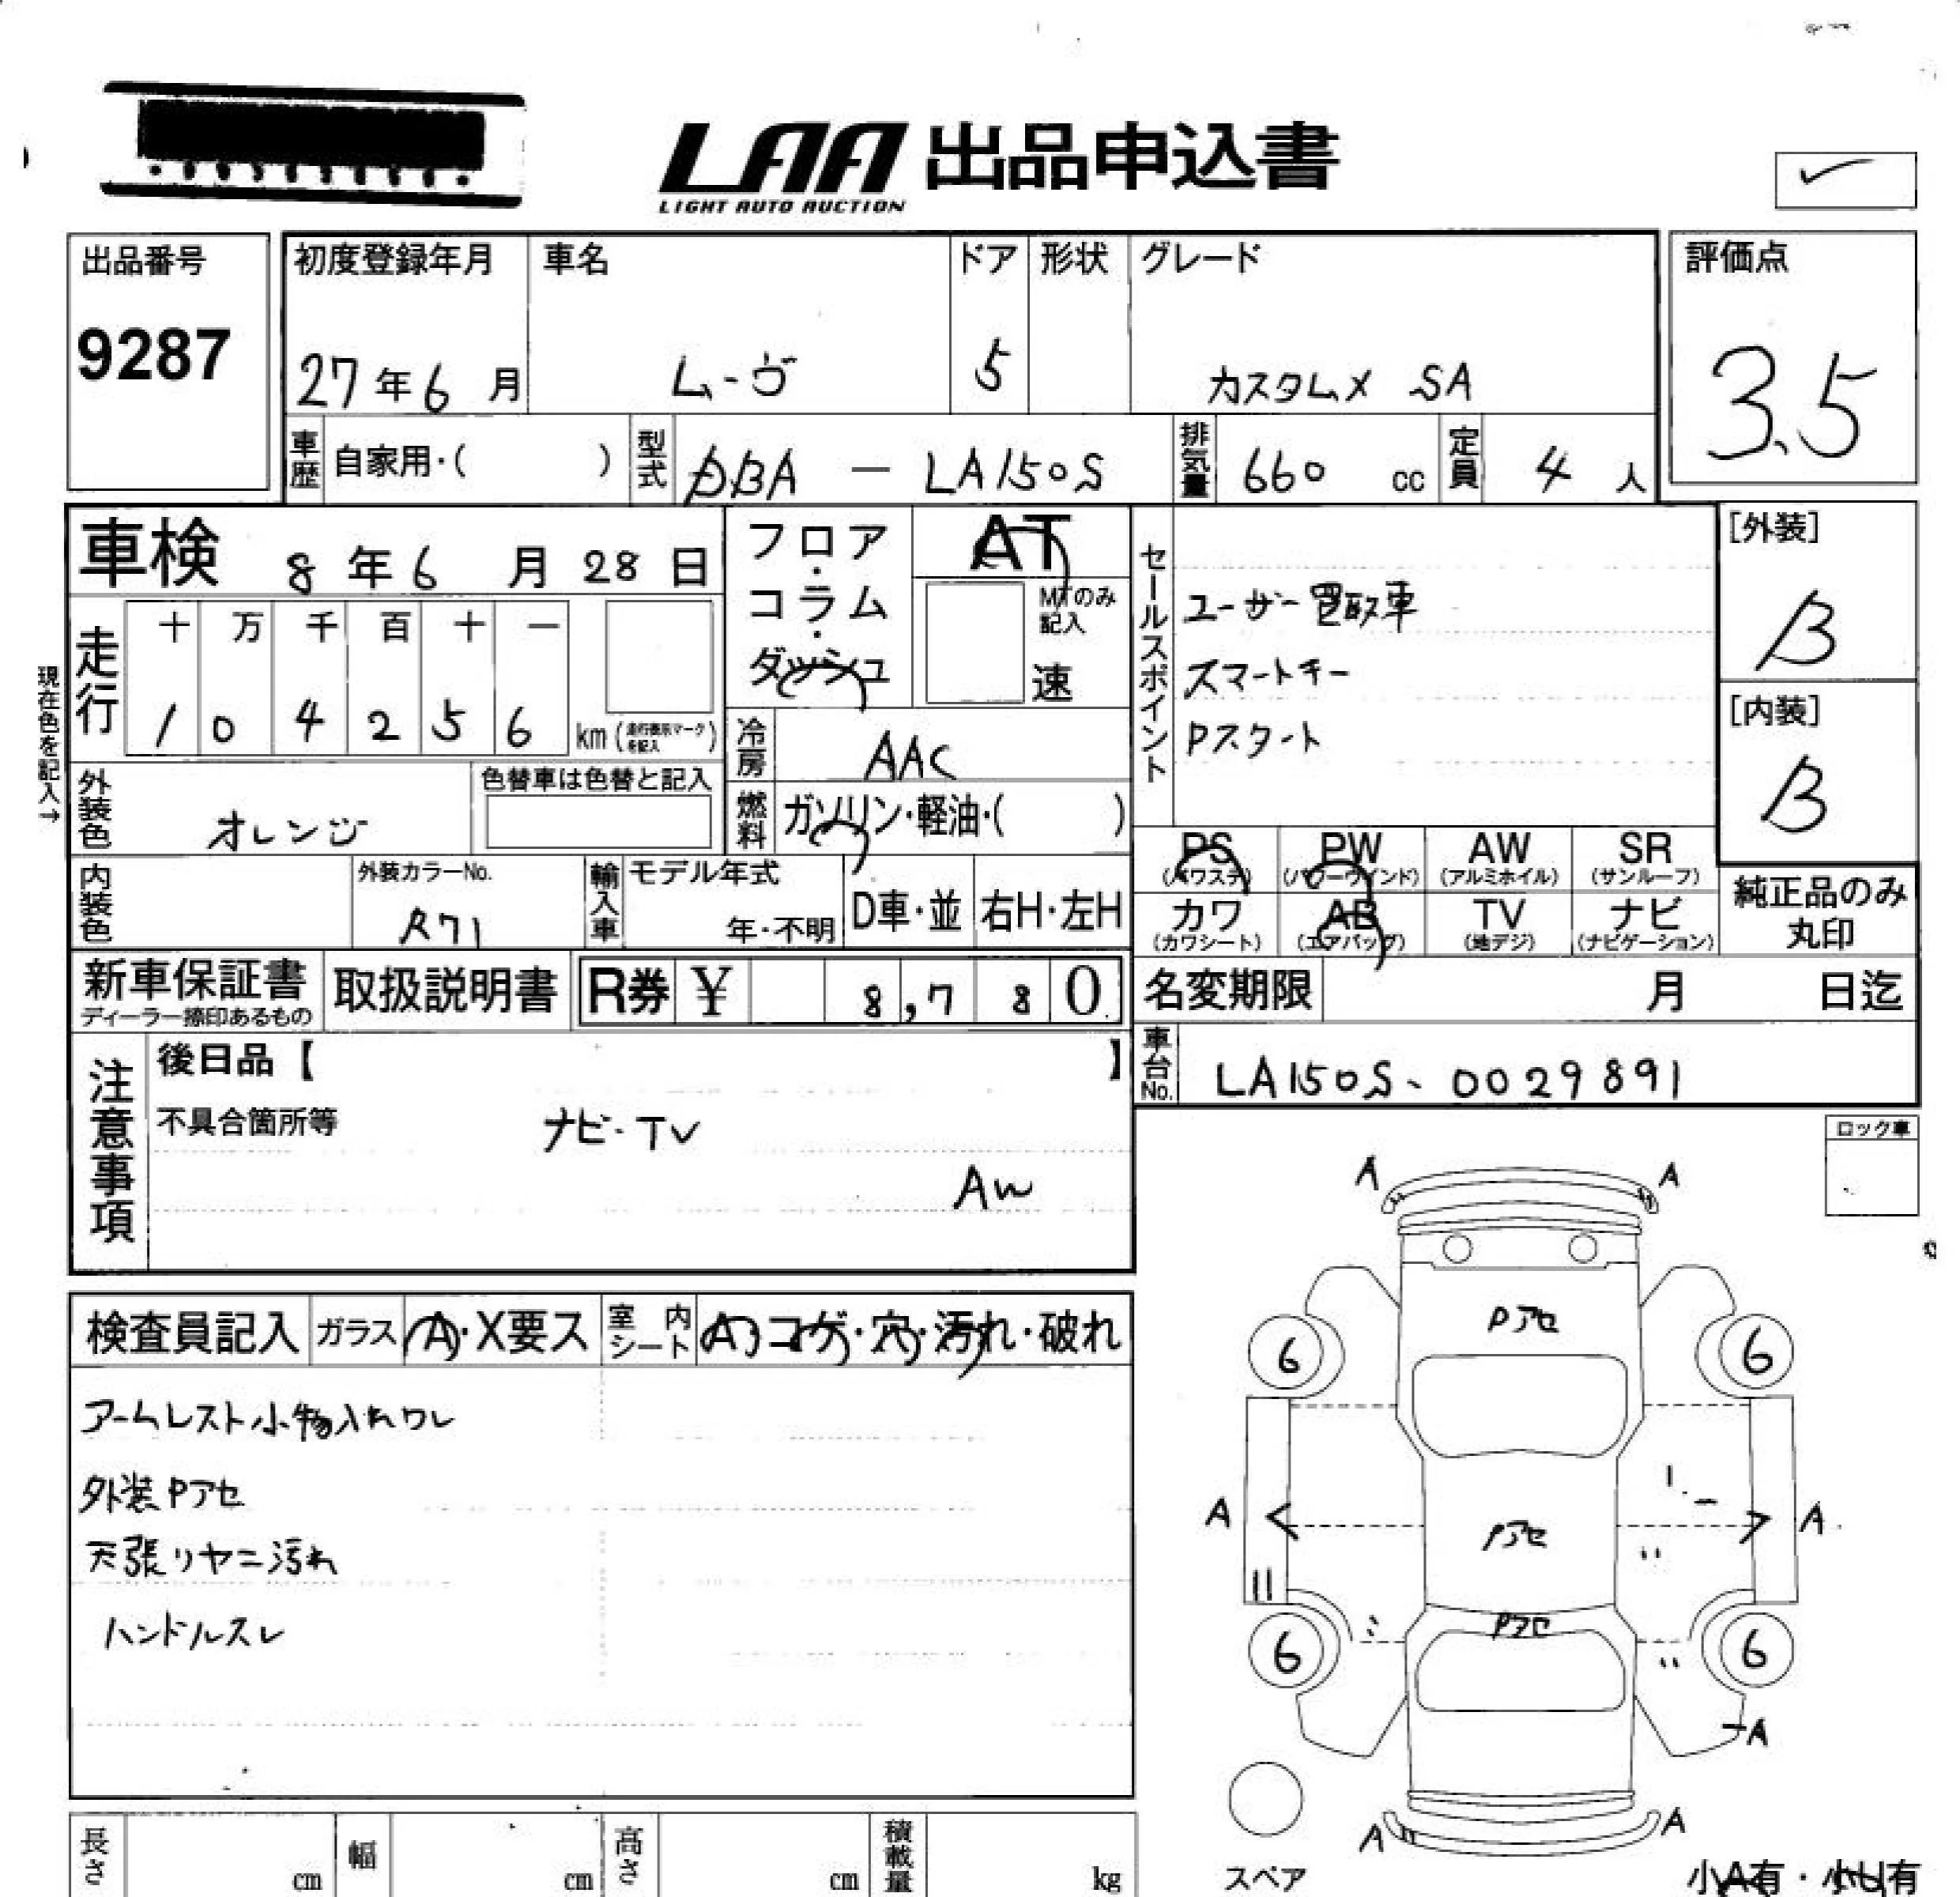 LAA 出品申込書
LIGHT AUTO AUCTION
出品番号
9287
初度登録年月
27年6月
車名
ムーヴ
ドア
5
形状
グレード
カスタムX SA
評価点
3.5
車歴
自家用・( )
型式
DBA — LA150S
排気量
660 cc
定員
4 人
車検 8年6月28日
走行
十 万 千 百 十 一
1 0 4 2 5 6 km (走行表示マークを記入)
現在色を記入→
フロア・コラム・ダッシュ
AT
MTのみ記入
速
冷房
AAC
燃料
ガソリン・軽油・( )
セールスポイント
ユーザー買取車
スマートキー
Pスタート
[外装]
B
[内装]
B
外装色
オレンジ
色替車は色替と記入
内装色
外装カラーNo.
R71
輸入車
モデル年式
年・不明
D車・並
右H・左H
PS (パワステ)
PW (パワーウインド)
AW (アルミホイル)
SR (サンルーフ)
カワ (カワシート)
AB (エアバッグ)
TV (地デジ)
ナビ (ナビゲーション)
純正品のみ
丸印
新車保証書
ディーラー捺印あるもの
取扱説明書
R券 ¥ 8,780
名変期限 月 日迄
車台No.
LA150S-0029891
注意事項
後日品【 】
不具合箇所等
ナビ・TV
AW
ロック車
検査員記入
ガラス
A・X要ス
室内シート
A・コゲ・穴・汚れ・破れ
アームレスト小物入れワレ
外装Pアセ
天張りヤニ汚れ
ハンドルスレ
A A
Pアセ
6 6
A A
Pアセ
Pアセ
6 6
A
A A
スペア
小A有・小U有
長さ cm
幅 cm
高さ cm
積載量 kg